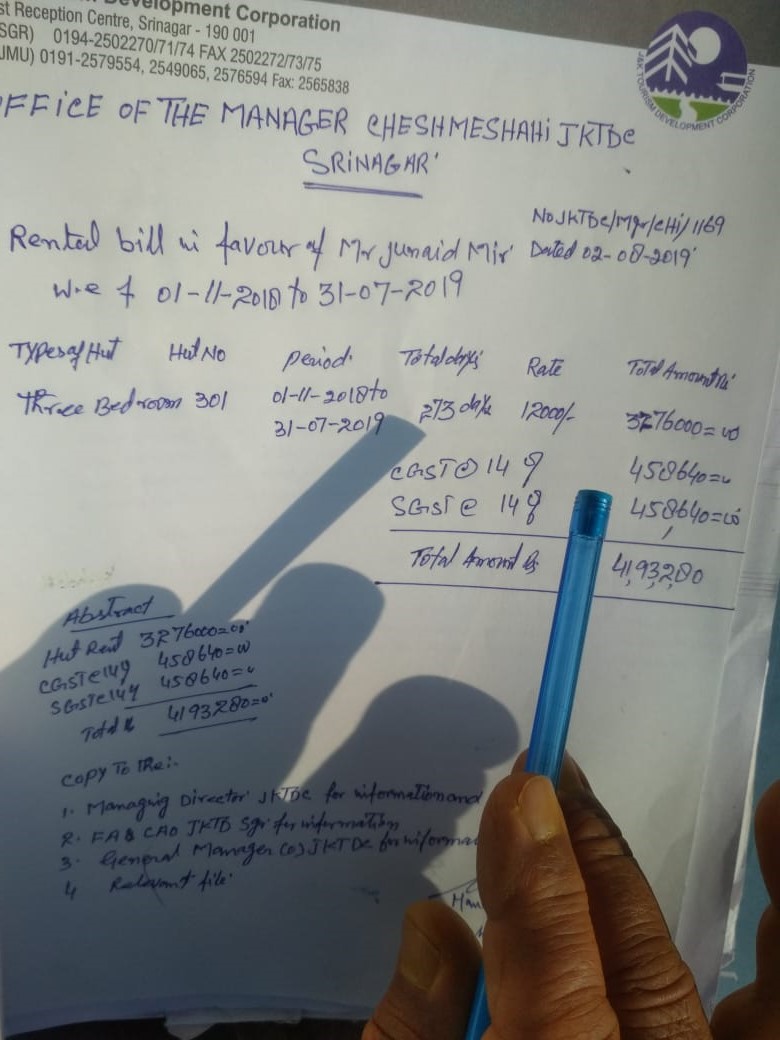 Development Corporation
st Reception Centre, Srinagar - 190 001
SGR) 0194-2502270/71/74 FAX 2502272/73/75
JMU) 0191-2579554, 2549065, 2576594 Fax: 2565838
J&K TOURISM DEVELOPMENT CORPORATION
OFFICE OF THE MANAGER CHESHMESHAHI JKTDC
SRINAGAR
No JKTDC/Mgr/CHi/1169
Rental bill in favour of Mr Junaid Mir Dated 02-08-2019
w.e f 01-11-2018 to 31-07-2019
Types of Hut Hut No Period Total days Rate Total Amount Rs
Three Bedroom 301 01-11-2018 to 273 days 12000/- 3276000=00
31-07-2019
CGST@ 14 % 458640=
SGST@ 14 % 458640=00
Total Amount Rs 41,93,280
Abstract
Hut Rent 3276000=00
CGST@14% 458640=00
SGST@14% 458640=
Total 4193280=0
Copy To The:-
1. Managing Director JKTDC for information and
2. FA & CAO JKTD Sgr for information
3. General Manager (O) JKTDC for informa
4 Relevant file
Man